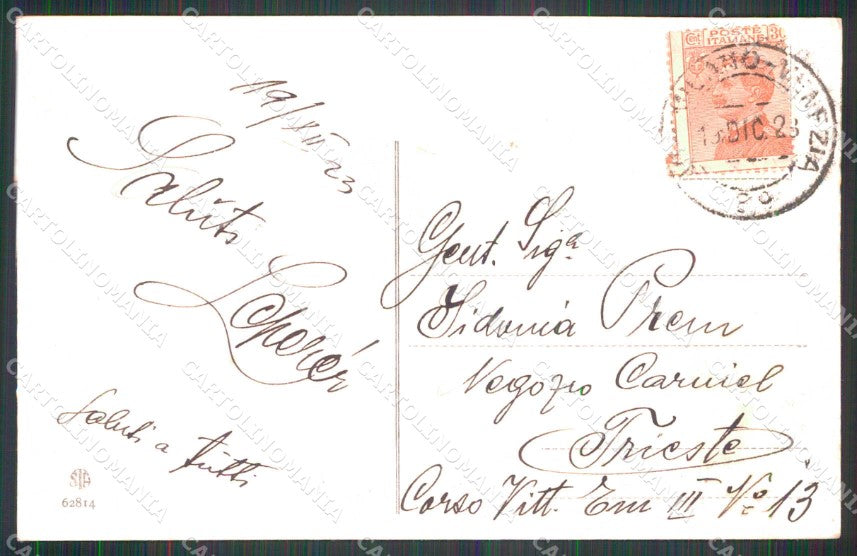 19/XII 23
Saluti
Saluti a tutti
62814
POSTE
ITALIANE
Cent 30
MILANO-VENEZIA
DIC. 23
Gent. Sigª
Sidonia Prem
Negozio Carniel
Trieste
Corso Vitt. Em III Nº 13
CARTOLINOMANIA